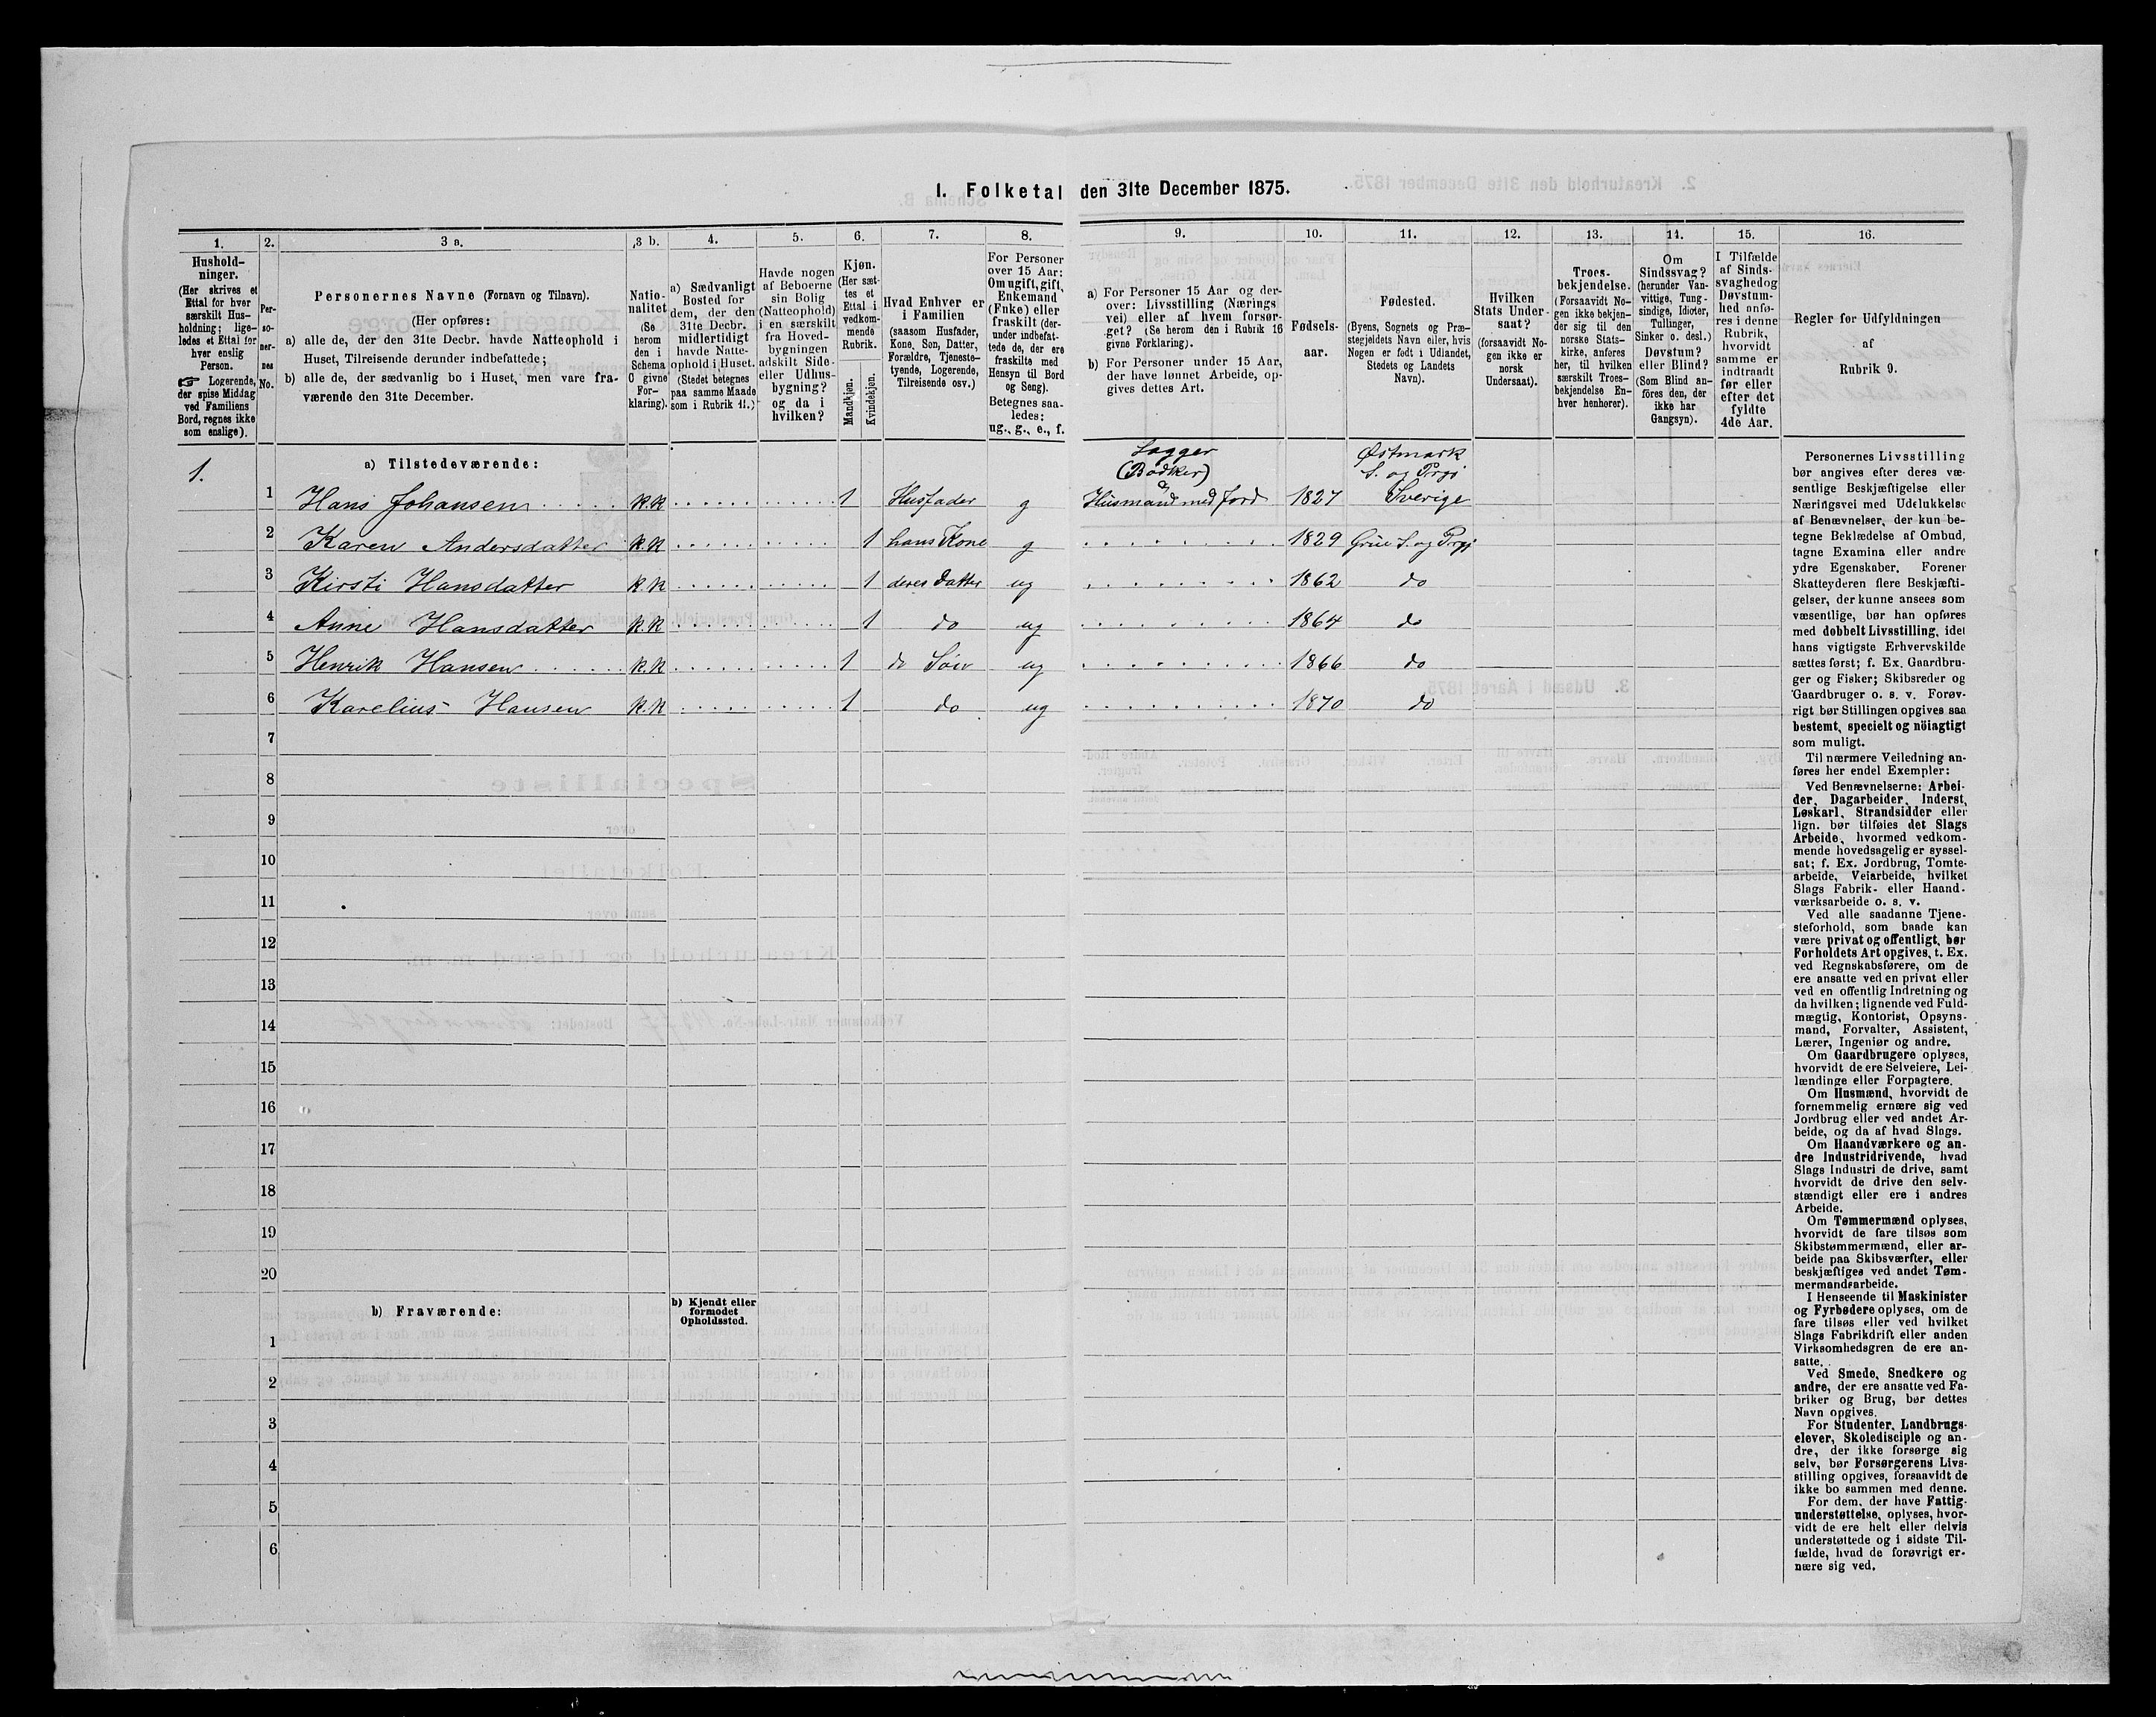 1. Folketal den 31te December 1875.
1.
Hushold-
ninger.
(Her skrives et
Ettal for hver
særskilt Hus-
holdning; lige-
ledes et Ettal for
hver enslig
Person.
☞ Logerende,
der spise Middag
ved Familiens
Bord, regnes ikke
som enslige).
2.
Per-
so-
ner-
nes
No.
3 a.
Personernes Navne (Fornavn og Tilnavn).
(Her opføres:
a) alle de, der den 31te Decbr. havde Natteophold i
Huset, Tilreisende derunder indbefattede;
b) alle de, der sædvanlig bo i Huset, men vare fra-
værende den 31te December.
3 b.
Natio-
nalitet
(Se
herom
den i
Schema
C givne
For-
klaring).
4.
a) Sædvanligt
Bosted for
dem, der den
31te Decbr.
midlertidigt
havde Natte-
ophold i Huset.
(Stedet betegnes
paa samme Maade
som i Rubrik 11.)
5.
Havde nogen
af Beboerne
sin Bolig
(Natteophold)
i en særskilt
fra Hoved-
bygningen
adskilt Side-
eller Udhus-
bygning?
og da i
hvilken?
6.
Kjøn.
(Her sæt-
tes et
Ettal i
vedkom-
mende
Rubrik.
Mandkjøn.
Kvindekjøn.
7.
Hvad Enhver er
i Familien
(saasom Husfader,
Kone, Søn, Datter,
Forældre, Tjeneste-
tyende, Logerende,
Tilreisende osv.)
8.
For Personer
over 15 Aar:
Om ugift, gift,
Enkemand
(Enke) eller
fraskilt (der-
under indbefat-
tede de, der ere
fraskilte med
Hensyn til Bord
og Seng).
Betegnes saa-
ledes:
ug., g., e., f.
9.
a) For Personer 15 Aar og der-
over: Livsstilling (Nærings
vei) eller af hvem forsør-
get? (Se herom den i Rubrik 16
givne Forklaring).
b) For Personer under 15 Aar,
der have lønnet Arbeide, op-
gives dettes Art.
10.
Fødsels-
aar.
11.
Fødested.
(Byens, Sognets og Præ-
stegjeldets Navn eller, hvis
Nogen er født i Udlandet,
Stedets og Landets
Navn).
12.
Hvilken
Stats Under-
saat?
(forsaavidt No-
gen ikke er
norsk
Undersaat).
13.
Troes-
bekjendelse.
(Forsaavidt No-
gen ikke bekjen-
der sig til den
norske Stats-
kirke, anføres
her, til hvilken
særskilt Troes-
bekjendelse En-
hver henhører).
14.
Om
Sindssvag?
(herunder Van-
vittige, Tung-
sindige, Idioter,
Tullinger,
Sinker o. desl.)
Døvstum?
eller Blind?
(Som Blind an-
føres den, der
ikke har
Gangsyn).
15.
I Tilfælde
af Sinds-
svaghed og
Døvstum-
hed anfø-
res i denne
Rubrik,
hvorvidt
samme er
indtraadt
før eller
efter det
fyldte
4de Aar.
16.
Regler for Udfyldningen
af
Rubrik 9.
1.
a) Tilstedeværende:
1 Hans Johansen k.k 1 Husfader g Lagger (Bødker) Husmand med Jord 1827 Østmark S. og Prgj Sverige
2 Karen Andersdatter k.k 1 hans Kone g 1829 Grue S. og Prgj
3 Kirsti Hansdatter k.k 1 deres Datter ug 1862 do
4 Anne Hansdatter k.k 1 do ug 1864 do
5 Henrik Hansen k.k 1 do Søn ug 1866 do
6 Karelius Hansen k.k 1 do ug 1870 do
7
8
9
10
11
12
13
14
15
16
17
18
19
20
b) Fraværende:
b) Kjendt eller
formodet
Opholdssted.
1
2
3
4
5
6
Personernes Livsstilling
bør angives efter deres væ-
sentlige Beskjæftigelse eller
Næringsvei med Udelukkelse
af Benævnelser, der kun be-
tegne Beklædelse af Ombud,
tagne Examina eller andre
ydre Egenskaber. Forener
Skatteyderen flere Beskjæfti-
gelser, der kunne ansees som
væsentlige, bør han opføres
med dobbelt Livsstilling, idet
hans vigtigste Erhvervskilde
sættes først; f. Ex. Gaardbru-
ger og Fisker; Skibsreder og
Gaardbruger o. s. v. Forøv-
rigt bør Stillingen opgives saa
bestemt, specielt og nöiagtigt
som muligt.
Til nærmere Veiledning an-
føres her endel Exempler:
Ved Benævnelserne: Arbei-
der, Dagarbeider, Inderst,
Løskarl, Strandsidder eller
lign. bør tilføies det Slags
Arbeide, hvormed vedkom-
mende hovedsagelig er syssel-
sat; f. Ex. Jordbrug, Tomte-
arbeide, Veiarbeide, hvilket
Slags Fabrik- eller Haand-
værksarbeide o. s. v.
Ved alle saadanne Tjene-
steforhold, som baade kan
være privat og offentligt, bør
Forholdets Art opgives, t. Ex.
ved Regnskabsførere, om de
ere ansatte ved en privat eller
ved en offentlig Indretning og
da hvilken; lignende ved Fuld-
mægtig, Kontorist, Opsyns-
mand, Forvalter, Assistent,
Lærer, Ingeniør og andre.
Om Gaardbrugere oplyses,
hvorvidt de ere Selveiere, Lei-
lændinge eller Forpagtere.
Om Husmænd, hvorvidt de
fornemmelig ernære sig ved
Jordbrug eller ved andet Ar-
beide, og da af hvad Slags.
Om Haandværkere og an-
dre Industridrivende, hvad
Slags Industri de drive, samt
hvorvidt de drive den selv-
stændigt eller ere i andres
Arbeide.
Om Tømmermænd oplyses,
hvorvidt de fare tilsøs som
Skibstømmermænd, eller ar-
beide paa Skibsværfter, eller
beskjæftiges ved andet Tøm-
mermandsarbeide.
I Henseende til Maskinister
og Fyrbødere oplyses, om de
fare tilsøs eller ved hvilket
Slags Fabrikdrift eller anden
Virksomhedsgren de ere an-
satte.
Ved Smede, Snedkere og
andre, der ere ansatte ved Fa-
briker og Brug, bør dettes
Navn opgives.
For Studenter, Landbrugs-
elever, Skoledisciple og an-
dre, der ikke forsørge sig
selv, bør Forsørgerens Livs-
stilling opgives, forsaavidt de
ikke bo sammen med denne.
For dem, der have Fattig-
understøttelse, oplyses, hvor-
vidt de ere helt eller delvis
understøttede og i sidste Til-
fælde, hvad de forøvrigt er-
nære sig ved.